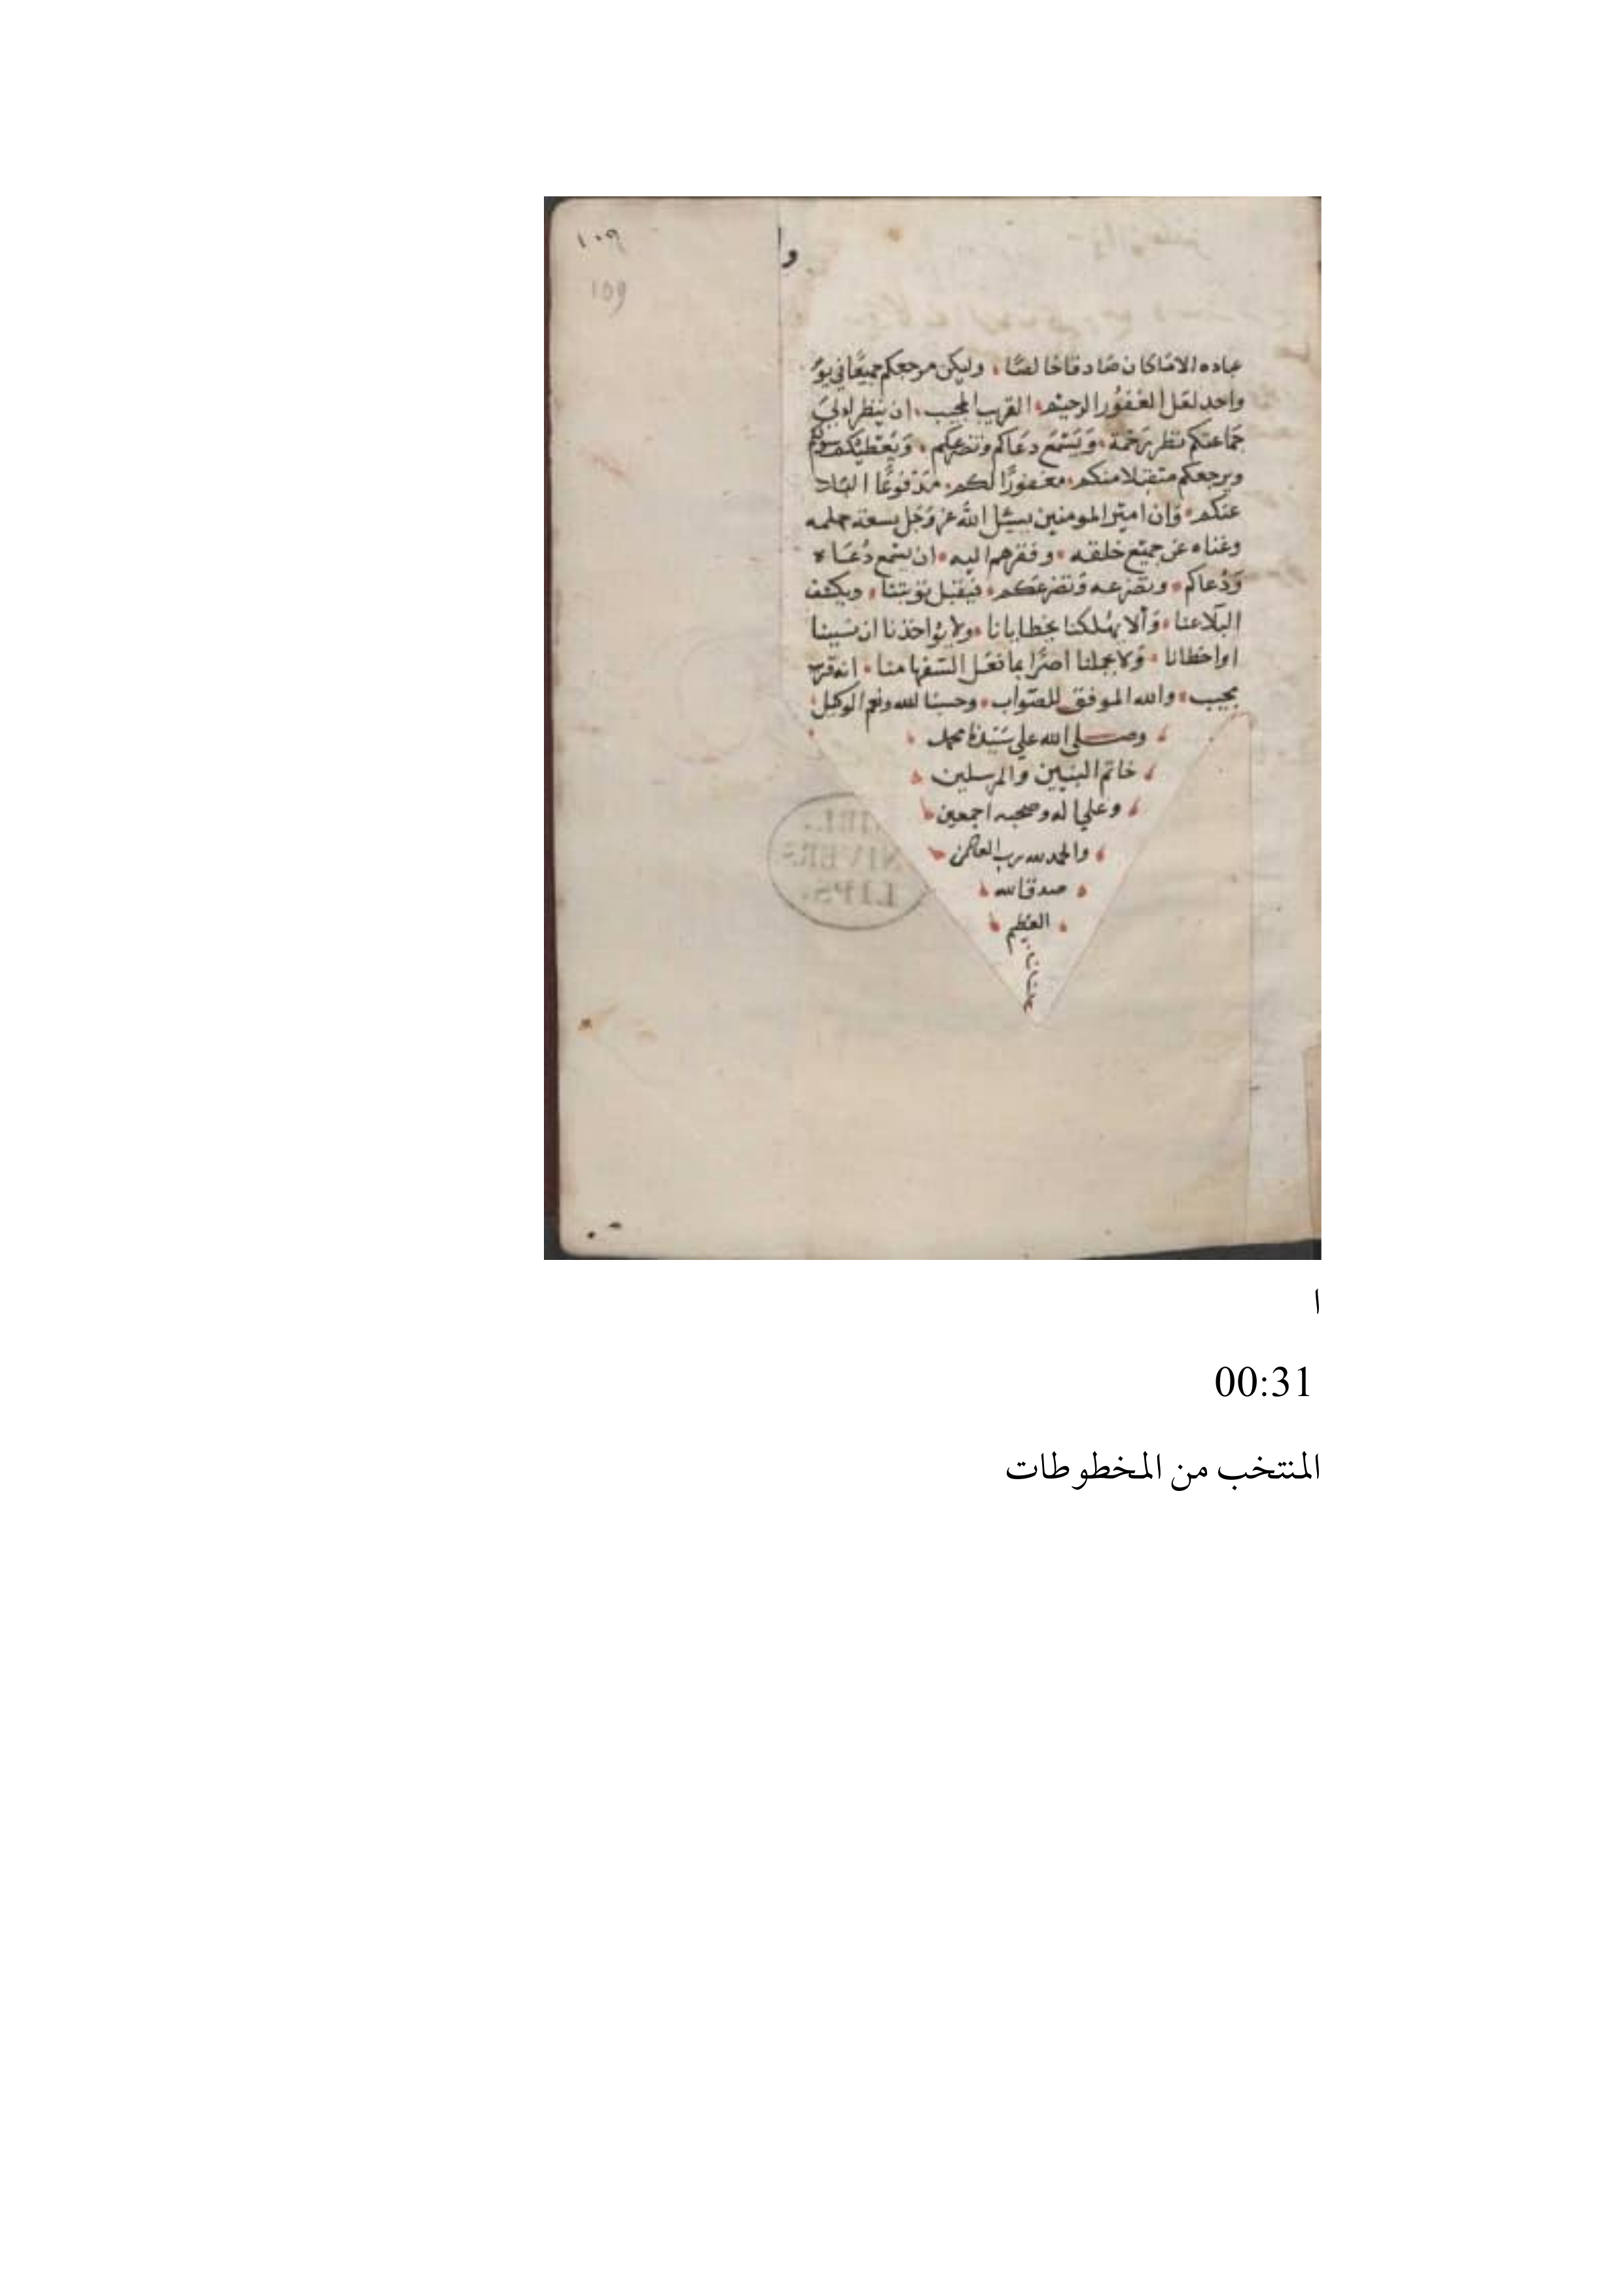 ١٠٩
109
وا
عباده الا ما كان صادقا خالصا وليكن مرجعكم جميعا في يو
واحد لعل الغفور الرحيم القريب المجيب ان ينظر الي
جماعتكم نظر رحمة ويستمع دعاكم وتضرعكم ويعطيكم سولكم
ويرجعكم متقبلا منكم مغفورا لكم مدفوعا البلا
عنكم وان امير المومنين يسئل الله عز وجل بسعة حلمه
وغناه عن جميع خلقه وفقرهم اليه ان يسمع دعاه
ودعاكم وتضرعه وتضرعكم فيقبل توبتنا ويكشف
البلا عنا وألا يهلكنا بخطايانا ولا يواخذنا ان نسينا
او اخطانا ولا يحملنا اصرا بما فعل السفها منا انه قريب
مجيب والله الموفق للصواب وحسبنا الله ونعم الوكيل
وصلى الله علي سيدنا محمد
خاتم النبيين والمرسلين
وعلي اله وصحبه اجمعين
والحمد لله رب العالمين
صدق الله
العظيم
BIBL.
UNIVERS
LIPS.
ا
00:31
المنتخب من المخطوطات